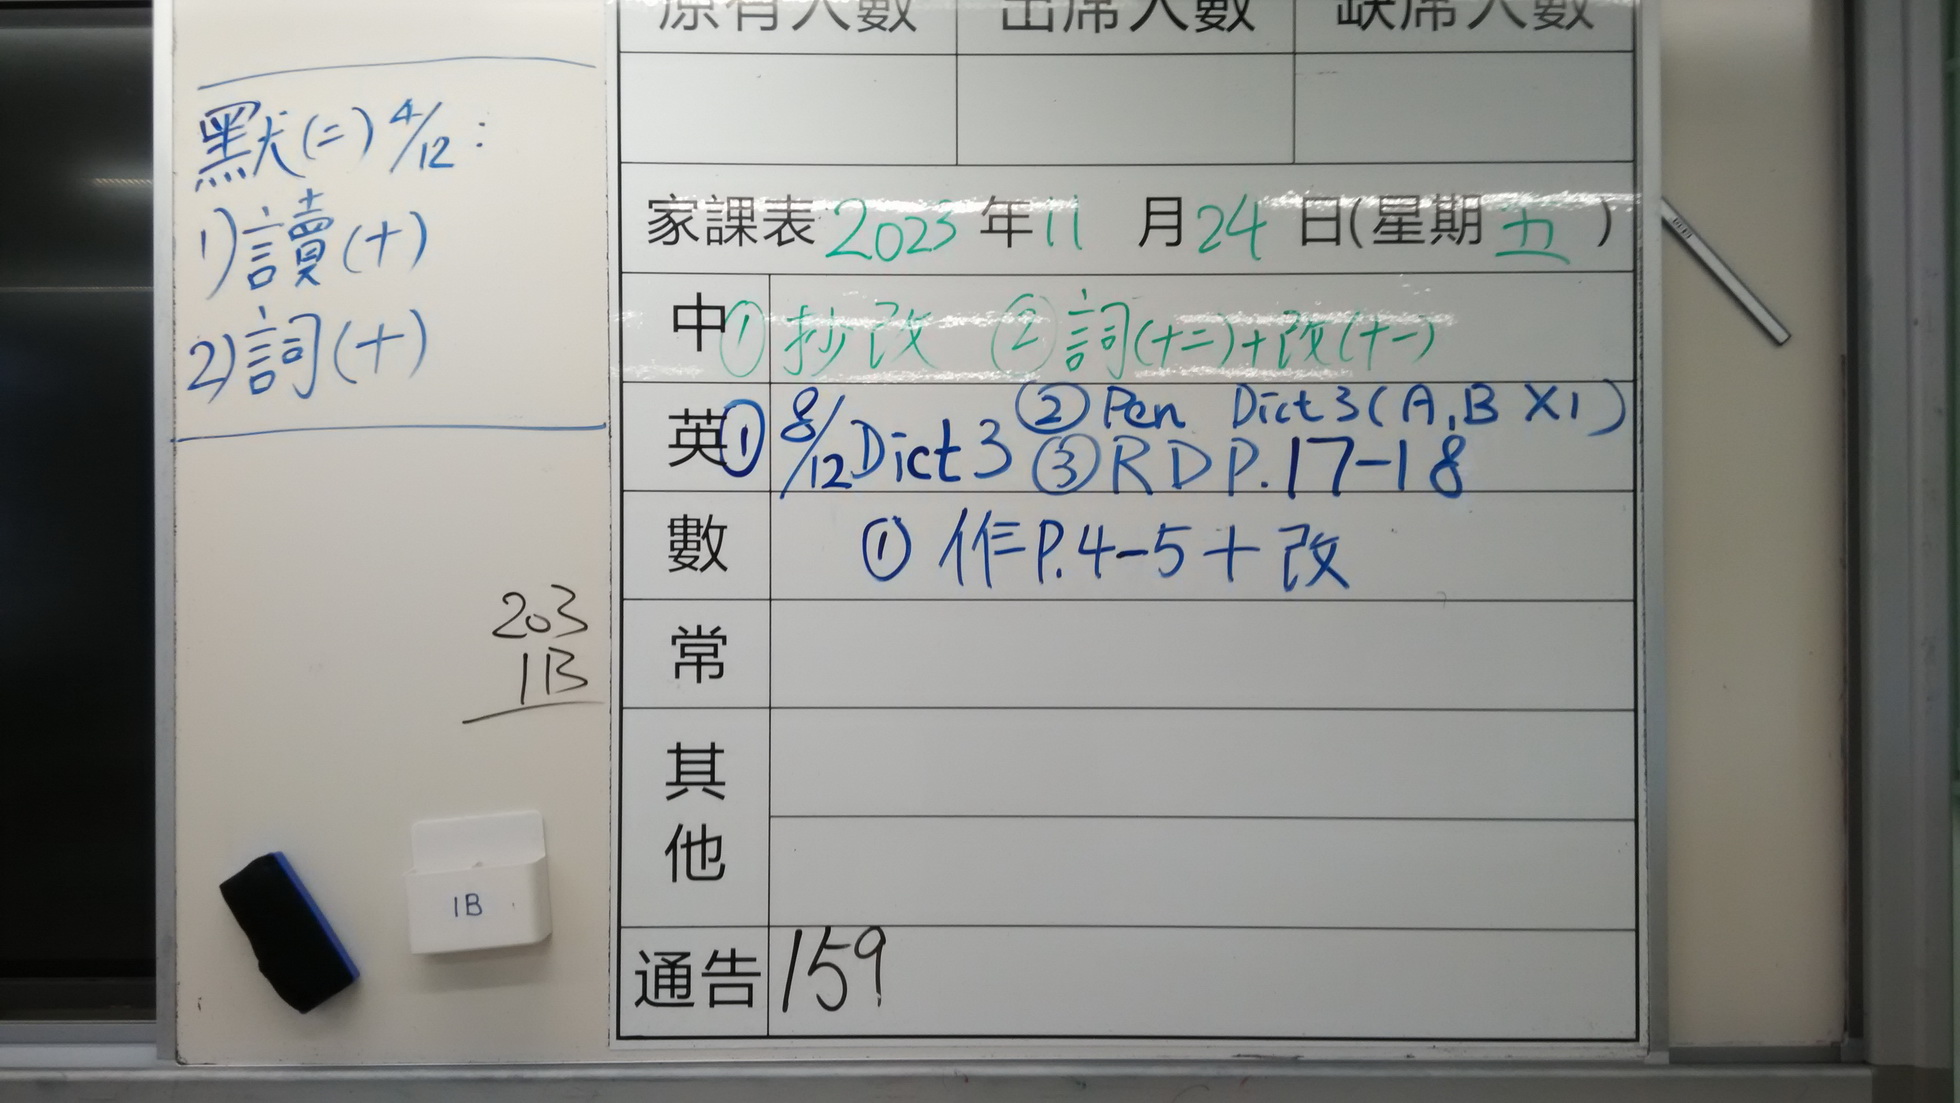 原有人數 出席人數 缺席人數
默(二) 4/12:
1) 讀(十)
2) 詞(十)
203
1B
1B
家課表 2023 年 11 月 24 日(星期 五 )
中 ① 抄改 ② 詞(十二)+改(十一)
英 ① 8/12 Dict 3 ② Pen Dict 3 (A,B X1)
③ RD P.17-18
數 ① 作 P.4-5 + 改
常
其他
通告 159